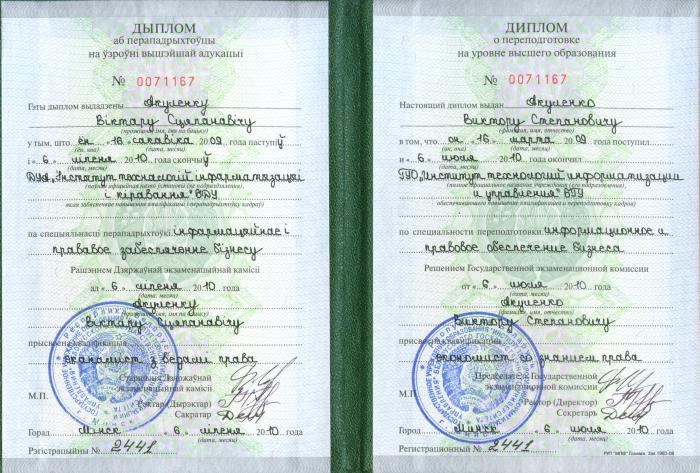 ДЫПЛОМ
аб перападрыхтоўцы
на ўзроўні вышэйшай адукацыі
№ 0071167
Гэты дыплом выдадзены Якушенку
Віктару Сцяпанавічу
(прозвішча, імя, імя па бацьку)
у тым, што ён „16" сакавіка 2009 года паступіў
(ён, яна) (дата, месяц)
і „6" ліпеня 2010 года скончыў
(дата, месяц)
ДУА „Інстытут тэхналогій інфарматызацыі
(поўная афіцыйная назва ўстановы (яе падраздзялення),
і кіравання" БДУ
якая забяспечвае павышэнне кваліфікацыі і перападрыхтоўку кадраў)
па спецыяльнасці перападрыхтоўкі інфармацыйнае і
прававое забеспячэнне бізнесу
Рашэннем Дзяржаўнай экзаменацыйнай камісіі
ад „6" ліпеня 2010 года
(дата, месяц)
Якушенку
(прозвішча, імя, імя па бацьку)
Віктару Сцяпанавічу
прысвоена кваліфікацыя
эканаміст з ведамі права
Старшыня Дзяржаўнай
экзаменацыйнай камісіі
М.П.
Рэктар (Дырэктар)
Сакратар
Горад Мінск „6" ліпеня 2010 года
(дата, месяц)
Рэгістрацыйны № 2441
ДИПЛОМ
о переподготовке
на уровне высшего образования
№ 0071167
Настоящий диплом выдан Якушенко
Виктору Степановичу
(фамилия, имя, отчество)
в том, что он „16" марта 2009 года поступил
(он, она) (дата, месяц)
и „6" июля 2010 года окончил
(дата, месяц)
ГУО „Институт технологий информатизации
(полное официальное название учреждения (его подразделения),
и управления" БГУ
обеспечивающего повышение квалификации и переподготовку кадров)
по специальности переподготовки информационное и
правовое обеспечение бизнеса
Решением Государственной экзаменационной комиссии
от „6" июля 2010 года
(дата, месяц)
Якушенко
(фамилия, имя, отчество)
Виктору Степановичу
присвоена квалификация
экономист со знанием права
Председатель Государственной
экзаменационной комиссии
М.П.
Ректор (Директор)
Секретарь
Город Минск „6" июля 2010 года
(дата, месяц)
Регистрационный № 2441